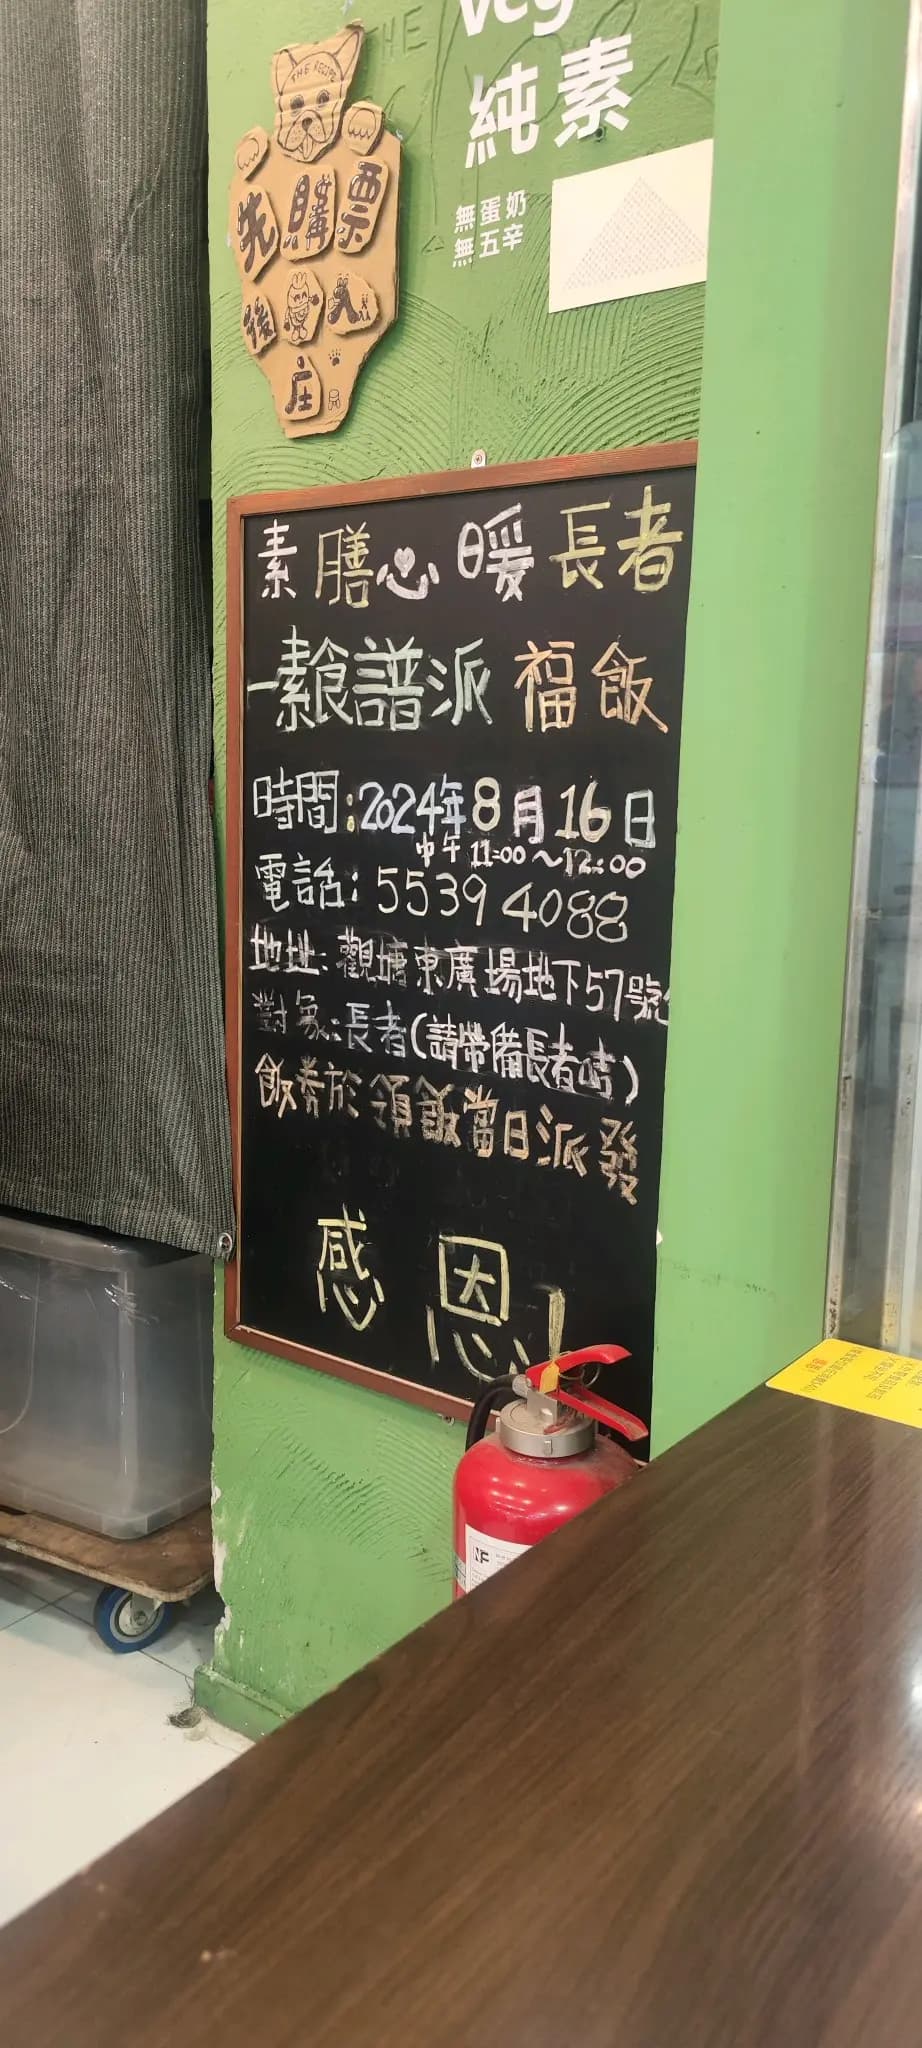 THE RECIPE
先購票
後入
庄
veg
純素
無蛋奶
無五辛
素膳心暖長者
一素食譜派福飯
時間:2024年8月16日
中午 11:00～12:00
電話: 5539 4088
地址: 觀塘東廣場地下57號
對象:長者(請帶備長者咭)
飯券於領飯當日派發
感恩!
NF